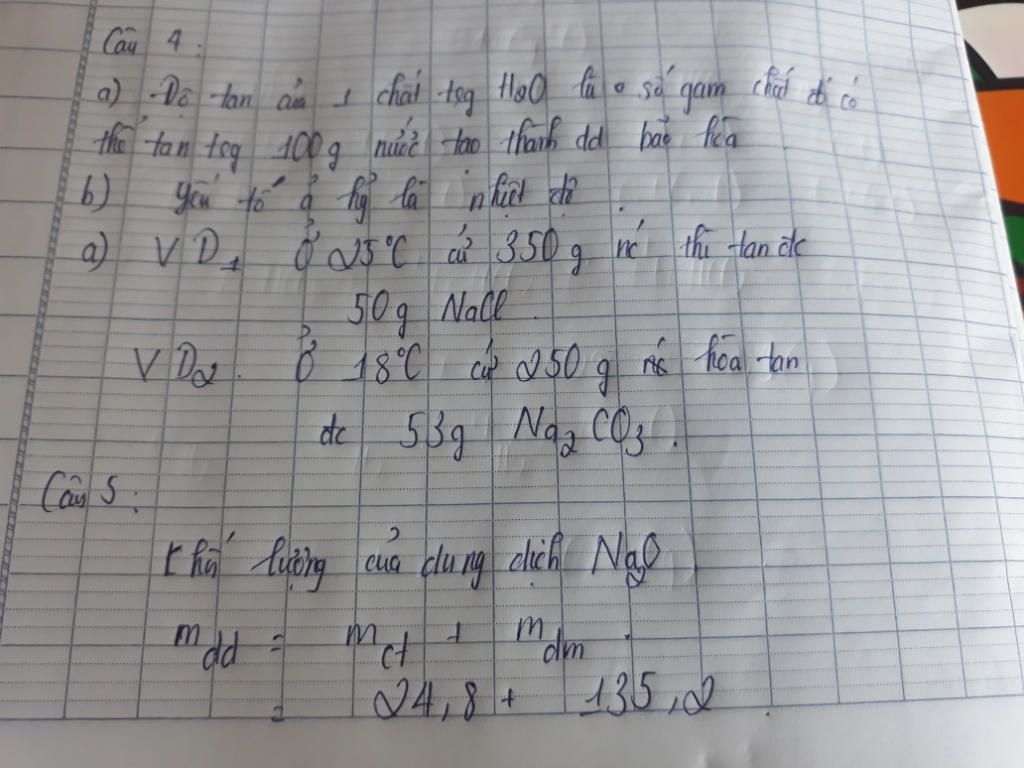 Câu 4:
a) Độ tan của 1 chất tog H2O là số gam chất đó có
thể tan tog 100g nước tạo thành dd bão hòa
b) yếu tố ả hg là nhiệt độ.
a) VD1 Ở 25°C cứ 350g nc thì tan đc
50g NaCl.
VD2. Ở 18°C cứ 250g nc hòa tan
đc 53g Na2CO3.
Câu 5:
Khối lượng của dung dịch Na2O
mdd = mct + mdm.
= 24,8 + 135,2